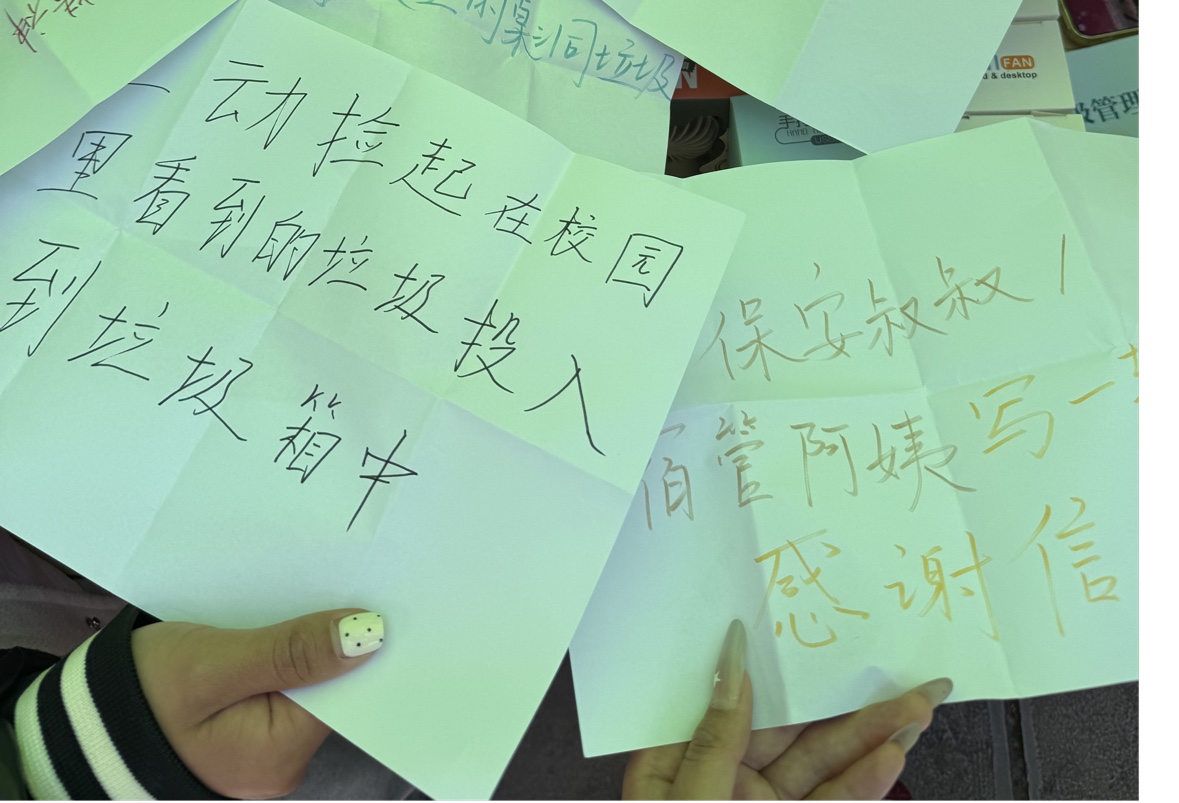 一动捡起在校园
里看到的垃圾投入
到垃圾箱中
保安叔叔/
宿管阿姨写一封
感谢信
桌洞垃圾
FAN
d & desktop
圾管理